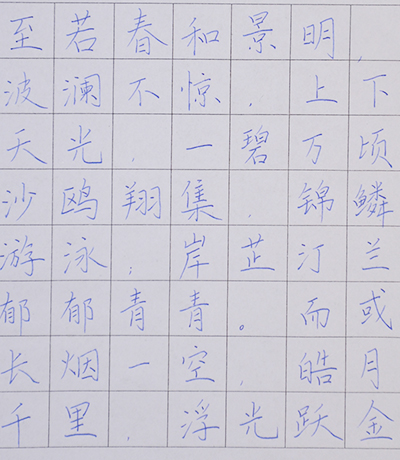 至若春和景明，
波澜不惊，上下
天光，一碧万顷
沙鸥翔集，锦鳞
游泳；岸芷汀兰
郁郁青青。而或
长烟一空，皓月
千里，浮光跃金